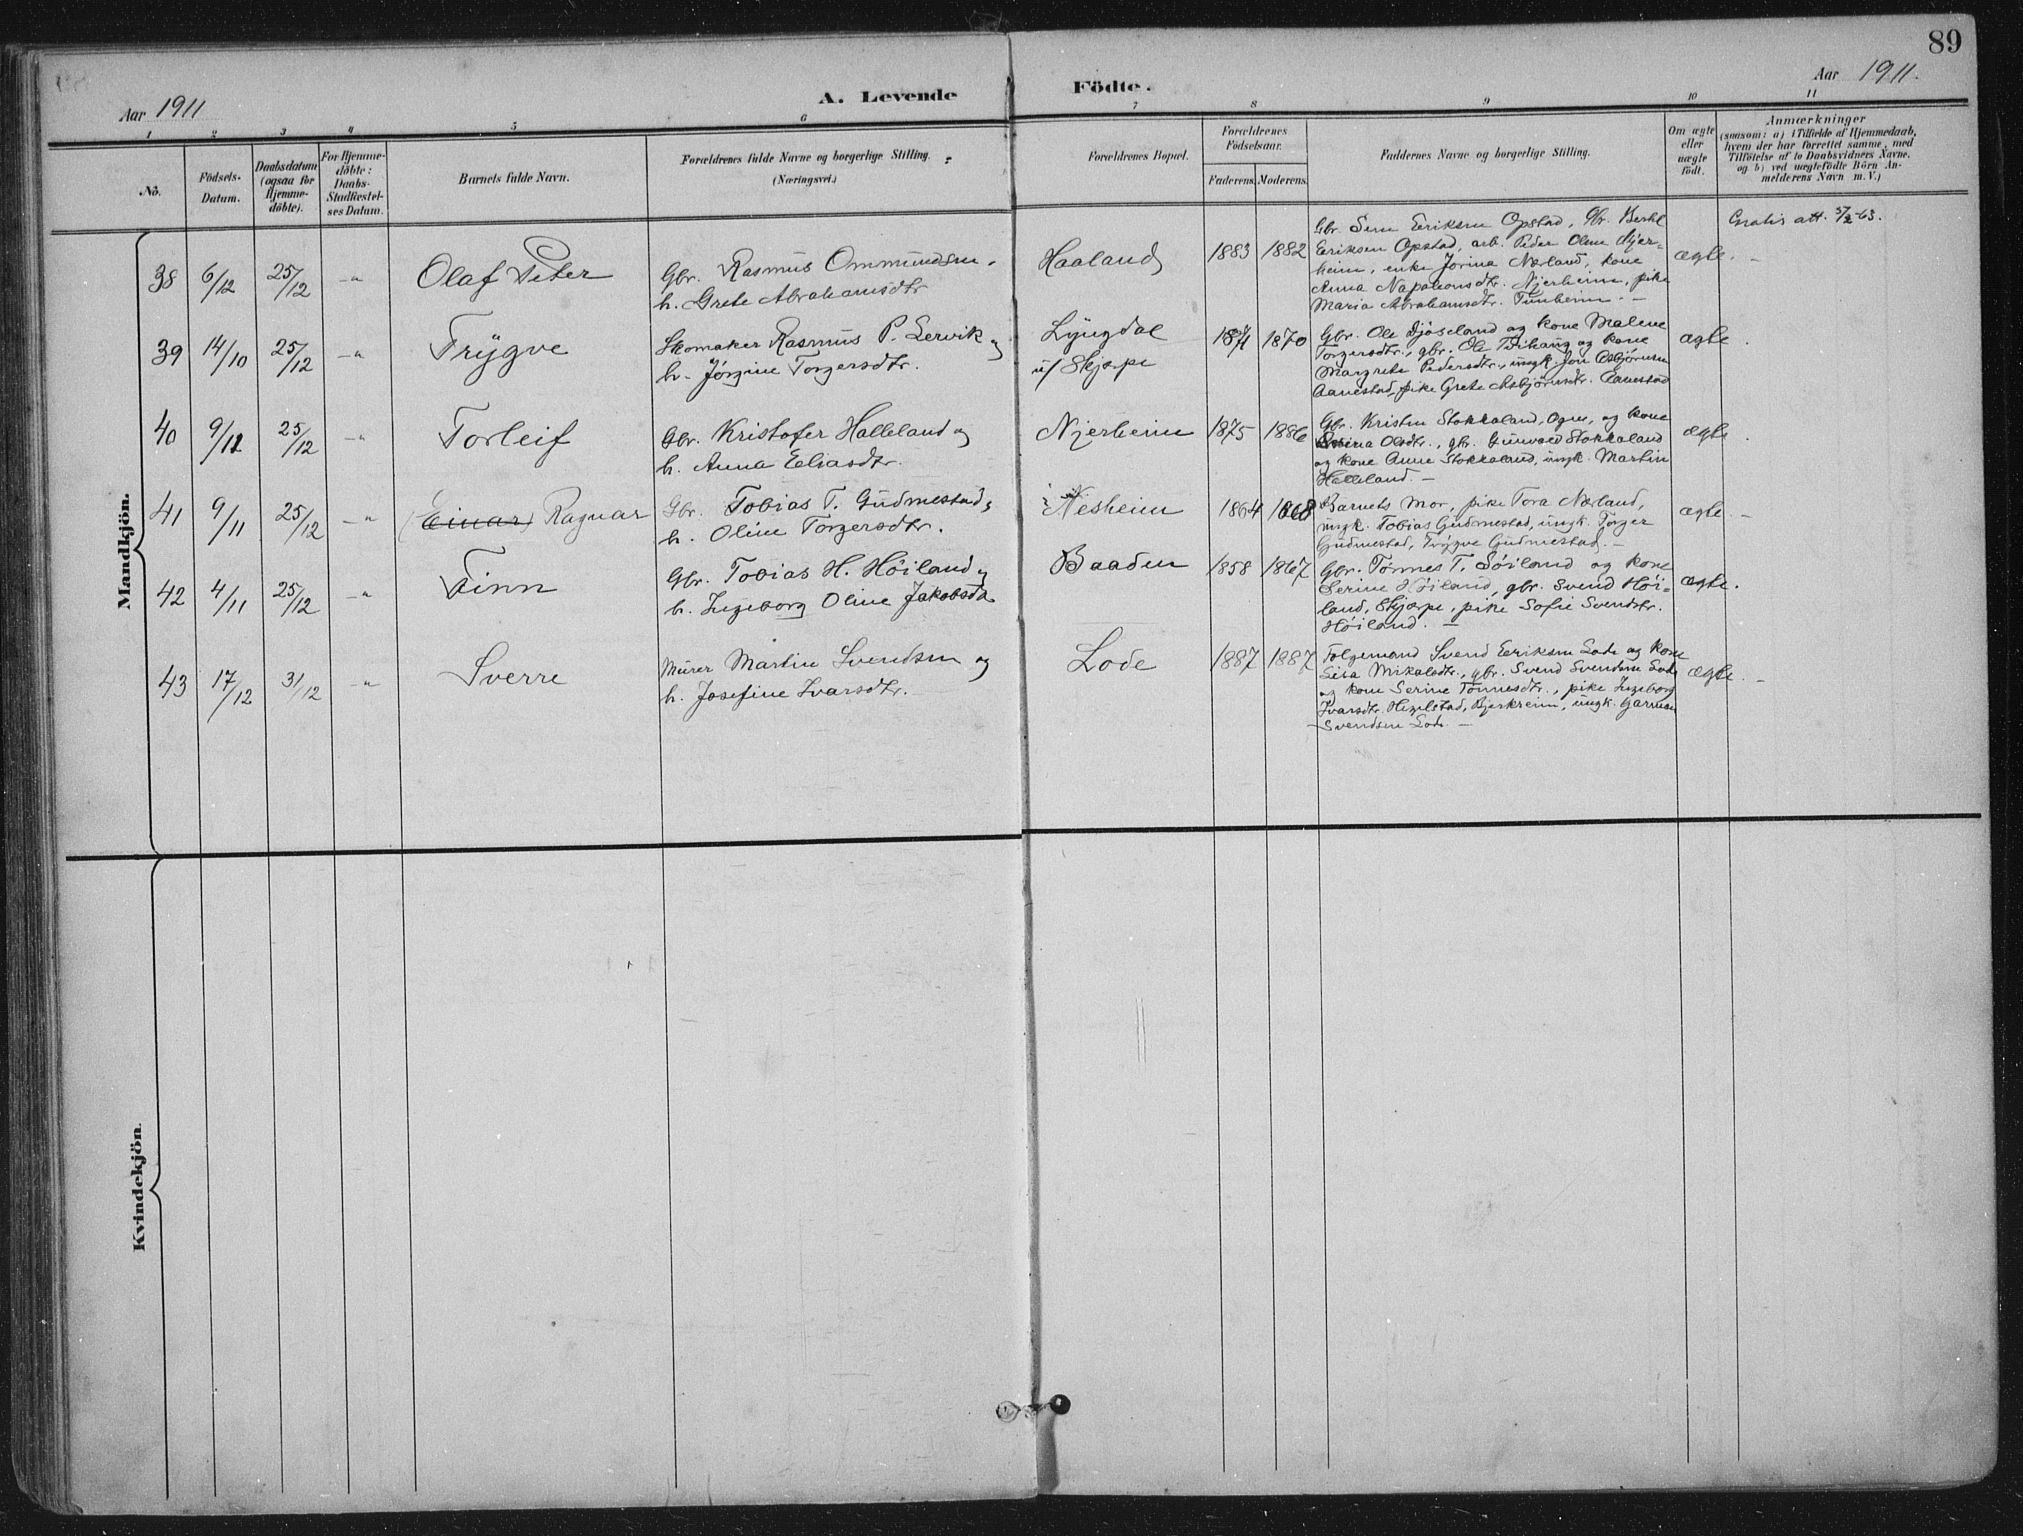 89
Aar 1911
A. Levende
Födte.
Aar 1911.
1 2 3 4 5 6 7 8 9 10 11
Nô.
Födsels-
Datum.
Daabsdatum
(ogsaa for
Hjemme-
döbte).
For Hjemme-
döbte:
Daabs-
Stadfestel-
ses Datum.
Barnets fulde Navn.
Forældrenes fulde Navne og borgerlige Stilling.
(Næringsvei.)
Forældrenes Bopæl.
Forældrenes
Födselsaar.
Faderens. Moderens.
Faddernes Navne og borgerlige Stilling.
Om ægte
eller
uægte
födt.
Anmærkninger
(saasom: a) i Tilfælde af Hjemmedaab,
hvem der har forrettet samme, med
Tilföielse af to Daabsvidners Navne.
og b) ved uægtefödte Börn An-
melderens Navn m. V.)
Mandkjön.
38 6/12 25/12 -"- Olaf Peter
Gbr. Rasmus Ommundsen.
h. Grete Abrahamsdtr
Haaland 1883 1882
Gbr. Sem Eriksen Opstad, Gbr. Bertel
Eriksen Opstad, arb. Peder Olsen Njer-
heim, enke Jorina Nærland, kone
Anna Napoleonsdtr. Njerheim, pike
Maria Abrahamsdtr. Tunheim. -
ægte. -
Gratis att. 5/2-63.
39 14/10 25/12 -"- Trygve
Skomaker Rasmus P. Lervik og
h. Jörgine Torgersdtr.
Lyngdal
u/ Skjærpe
1871 1870
Gbr. Ole Djöseland og kone Malene
Torgersdtr., gbr. Ole Tuthaug og kone
Margrete Pedersdtr., ungk. Jon Asbjörnsen
Aanestad, pike Grete Asbjörnsdtr. Aanestad
ægte.
40 9/12 25/12 -"- Torleif
Gbr. Kristofer Helleland og
h. Anna Eliasdtr.
Njerheim 1875 1886
Gbr. Kristen Stokkaland, Ogne, og kone
Olsdtr., gbr. Gunvald Stokkaland
og kone Anne Stokkaland, ungk. Martin
Helleland. -
ægte.
41 9/11 25/12 -"- (Einar) Ragnar
Gbr. Tobias T. Gudmestad og
h. Oline Torgersdtr.
Nesheim 1864 1868
Barnets Mor, pike Tora Nærland,
ungk. Tobias Gudmestad, ungk. Torger
Gudmestad, Trygve Gudmestad. -
ægte. -
42 4/11 25/12 -"- Finn
Gbr. Tobias H. Höiland og
h. Ingeborg Oline Jakobsdtr
Baaden 1858 1867
Gbr. Tönnes T. Söiland og kone
Serine Höiland, gbr. Svend Höi-
land, Skjærpe, pike Sofie Svendsdtr.
Höiland. -
ægte.
43 17/12 31/12 -"- Sverre
Murer Martin Svendsen og
h. Josefine Ivarsdtr.
Lode 1887 1887
Folgemand Svend Eriksen Lode og kone
Sisa Mikalsdtr., gbr. Svend Svendsen Lode
og kone Serine Tönnesdtr., pike Ingeborg
Ivarsdtr. Hegelstad, Bjerkreim, ungk. Garman
Svendsen Lode. -
ægte. -
Kvindekjön.